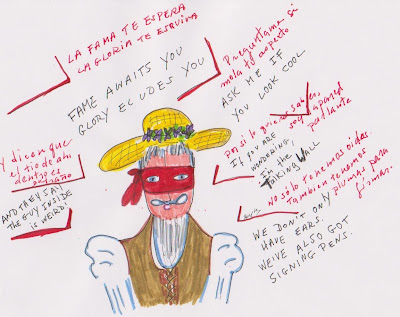 LA FAMA TE ESPERA
LA GLORIA TE ESQUIVA
FAME AWAITS YOU
GLORY ELUDES YOU
Preguntame si
mola tu aspecto
ASK ME IF
YOU LOOK COOL
Y dicen que
el tio de ahi
dentro es
extraño
AND THEY SAY
THE GUY INSIDE
IS WEIRD!
por si lo quieres saber,
soy la pared
parlante
IF YOU ARE
WONDERING,
I'm the
TALKING WALL
No sólo tenemos oidas.
Tambien tenemos
plumas para
firmar.
WE DON'T ONLY
HAVE EARS.
WE'VE ALSO GOT
SIGNING PENS.